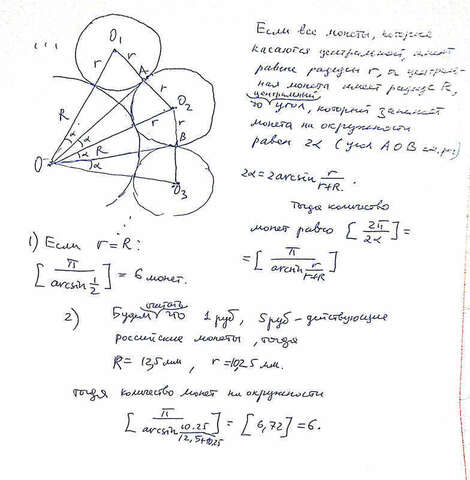 ...
O₁
r
r
A
R
r
O₂
α
α
r
r
R
α
B
O
α
r
O₃
...
Если все монеты, которые
касаются центральной, имеют
равные радиусы r, а централь-
ная монета имеет радиус R,
центральный
то угол, который занимает
монета на окружности
равен 2α (угол AOB =
2α = 2 arcsin r/(r+R).
Тогда количество
монет равно [2π/2α] =
= [π/arcsin r/(r+R)]
1) Если r = R:
[π/arcsin 1/2] = 6 монет.
считать
2) Будем что 1 руб, 5 руб – действующие
российские монеты, тогда
R = 12,5 мм, r = 10,25 мм.
Тогда количество монет на окружности
[π/arcsin 10.25/(12,5+10,25)] = [6,72] = 6.